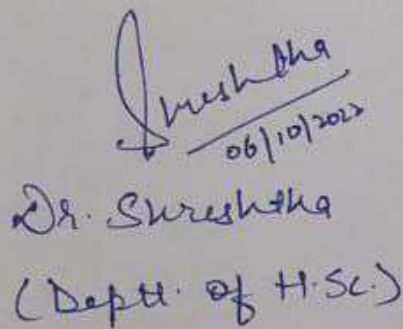 Shreshtha
06/10/2022
Dr. Shreshtha
(Deptt. of H.Sc.)